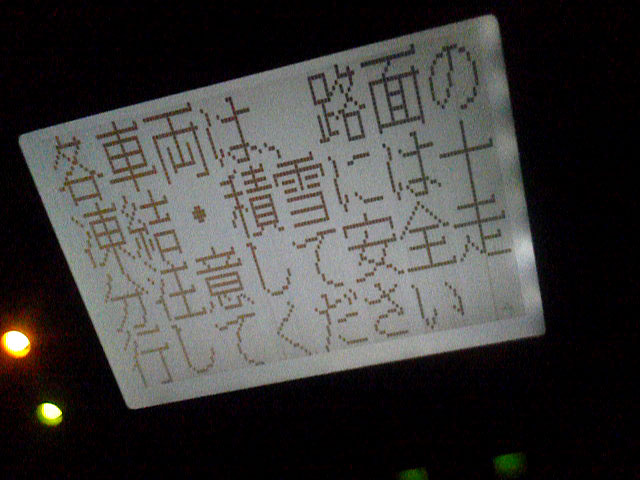 各車両は、路面の
凍結・積雪には十
分注意して安全走
行してください